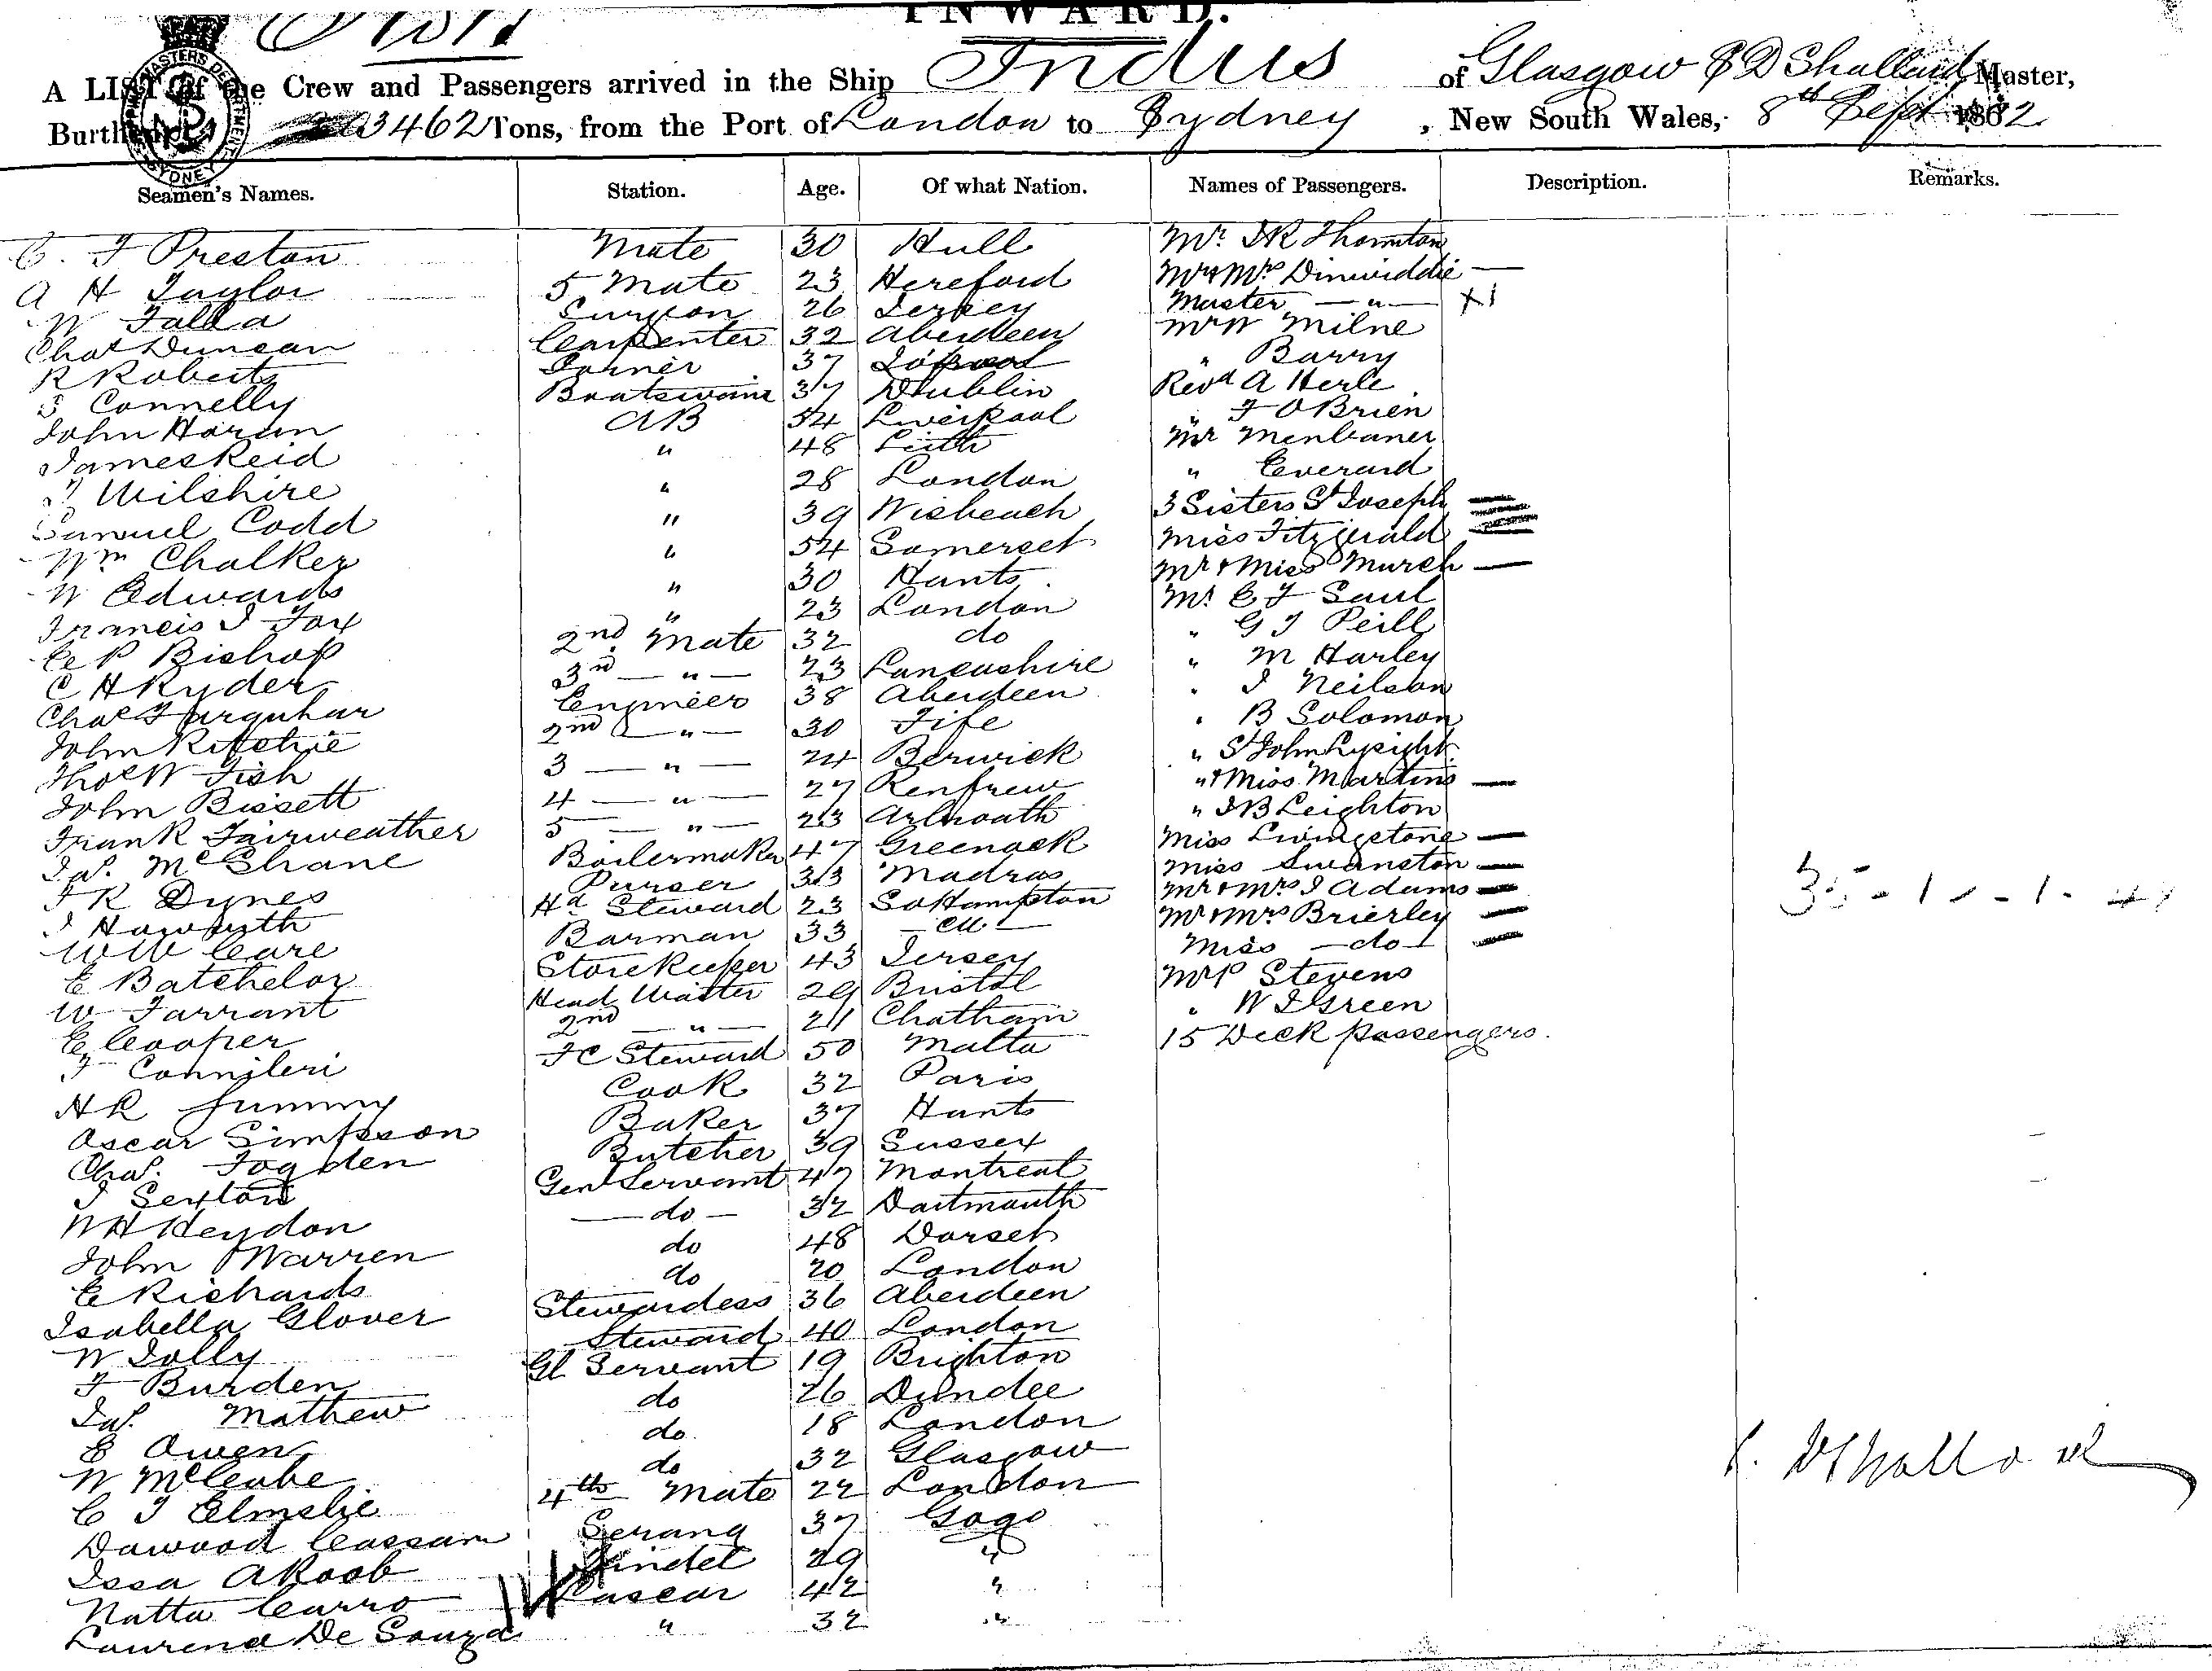 INWARD.
A LIST of the Crew and Passengers arrived in the Ship Indus of Glasgow Master,
Burthen 3462 Tons, from the Port of London to Sydney, New South Wales, 8th Sept 1882
Seamen's Names. Station. Age. Of what Nation. Names of Passengers. Description. Remarks.
C. F Preston Mate 30 Hull Mr. Thornton
A H Taylor 5 Mate 23 Hereford Mr & Mrs Dinwiddie —
W Falla Surgeon 26 Jersey Master — " —
Chas Duncan Carpenter 32 Aberdeen Mr W Milne
R Roberts Joiner 37 " Barry
Connelly Boatswain 37 Dublin Revd A Herle
John Horan AB 54 Liverpool " F OBrien
James Reid " 48 Leith Mr
Wilshire " 28 London " Everard
Samuel Codd " 39 Wisbeach 3 Sisters St Joseph
Wm Chalker " 54 Somerset Miss Fitzgerald
W Edwards " 30 Hants Mr & Miss Murch —
Francis J Fox " 23 London Mr C F Saul
C P Bishop 2nd Mate 32 do " G J Peill
C H Ryder 3rd — " — 23 Lancashire " M Harley
Chas Farquhar Engineer 38 Aberdeen " J Neilson
John Ritchie 2nd — " — 30 Fife " B Solomon
Thos W Fish 3 — " — 24 Berwick " St John Lysight
John Bissett 4 — " — 27 Renfrew " & Miss Martins —
Frank Fairweather 5 — " — 23 Arbroath " J B Leighton
Jas. McShane Boilermaker 47 Greenock Miss Livingstone —
F R Dynes Purser 33 Madras Miss Swanston —
J Haworth Hd Steward 23 SoHampton Mr & Mrs J Adams —
W W Care Barman 33 Mr & Mrs Brierley —
E Batchelor Storekeeper 43 Jersey Miss — do — —
W Farrant Head Waiter 29 Bristol Mr P Stevens
E Cooper 2nd — " — 21 Chatham " W J Green
F FC Steward 50 Malta 15 Deck passengers.
H R Cook 32 Paris
Oscar Simpson Baker 37 Hants
Chas. Fogden Butcher 39 Sussex
J Sexton Genl Servant 47 Montreal
W H Heydon — do — 32 Dartmouth
John Warren do 48 Dorset
E Richards do 20 London
Isabella Glover Stewardess 36 Aberdeen
W Jolly Steward 40 London
F Burden Gl Servant 19 Brighton
Jas. Mathew do 26 Dundee
E Owen do 18 London
W McCabe do 32 Glasgow
C J Elmslie 4th Mate 22 London
Dawood Cassam Serang 37 Gogo
Issa Akoob Tindel 29 "
Natta Curro Lascar 42 "
De Souza " 32 "